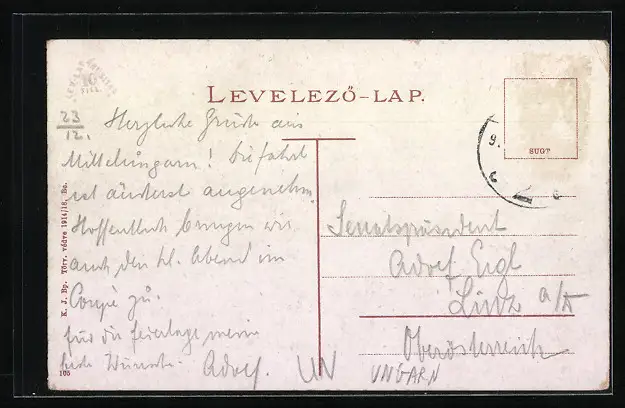 LEVELEZŐ-LAP.
23
12.
Herzliche Grüße aus
Mittelungarn! Die Fahrt
ist äußerst angenehm.
Hoffentlich bringen wir
auch den hl. Abend im
Coupé zu.
Für die Feiertage meine
Wünsche. Adolf.
K. J. Bp. Törv. védve 1914/18.
105
10
FILL.
BUGT
9.
Senatspräsident
Adolf
Linz a/D
Oberösterreich
UN
UNGARN